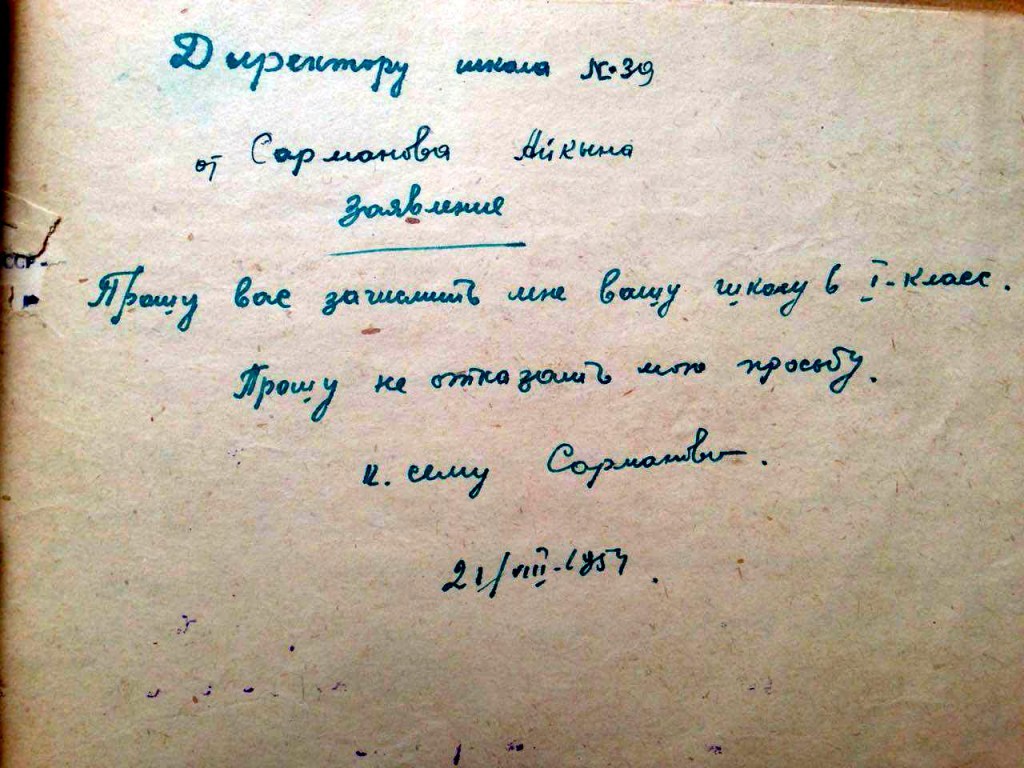 Директору школа №39
от Сарманова Айкына
Заявление
ССР-
Прошу вас зачислить мне вашу школу в I-класс.
Прошу не отказать мою просьбу.
к. сему Сарманов.
21/VIII-1954.